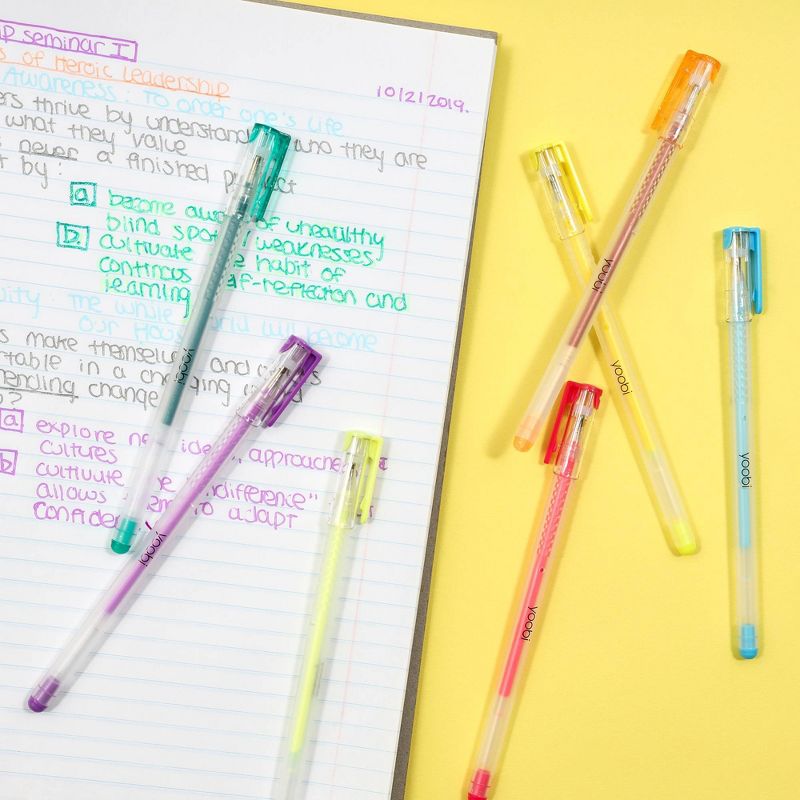 p seminar I
s of Heroic Leadership
10/2/2019.
Awareness: To order one's life
ers thrive by understand who they are
what they value
never a finished pr ct
t by:
a become aw of unhealthy
blind spot / weaknesses
b. cultivate e habit of
continous lf-reflection and
learning
uity: The whole
Our Hous rld will become
s make themsel and o s
rtable in a ch ging w d
mending change
o?
a explore n ide , approache
cultures
b cultivate e "indifference"
allows em to adapt
confide
yoobi
yoobi
yoobi
yoobi
yoobi
yoobi